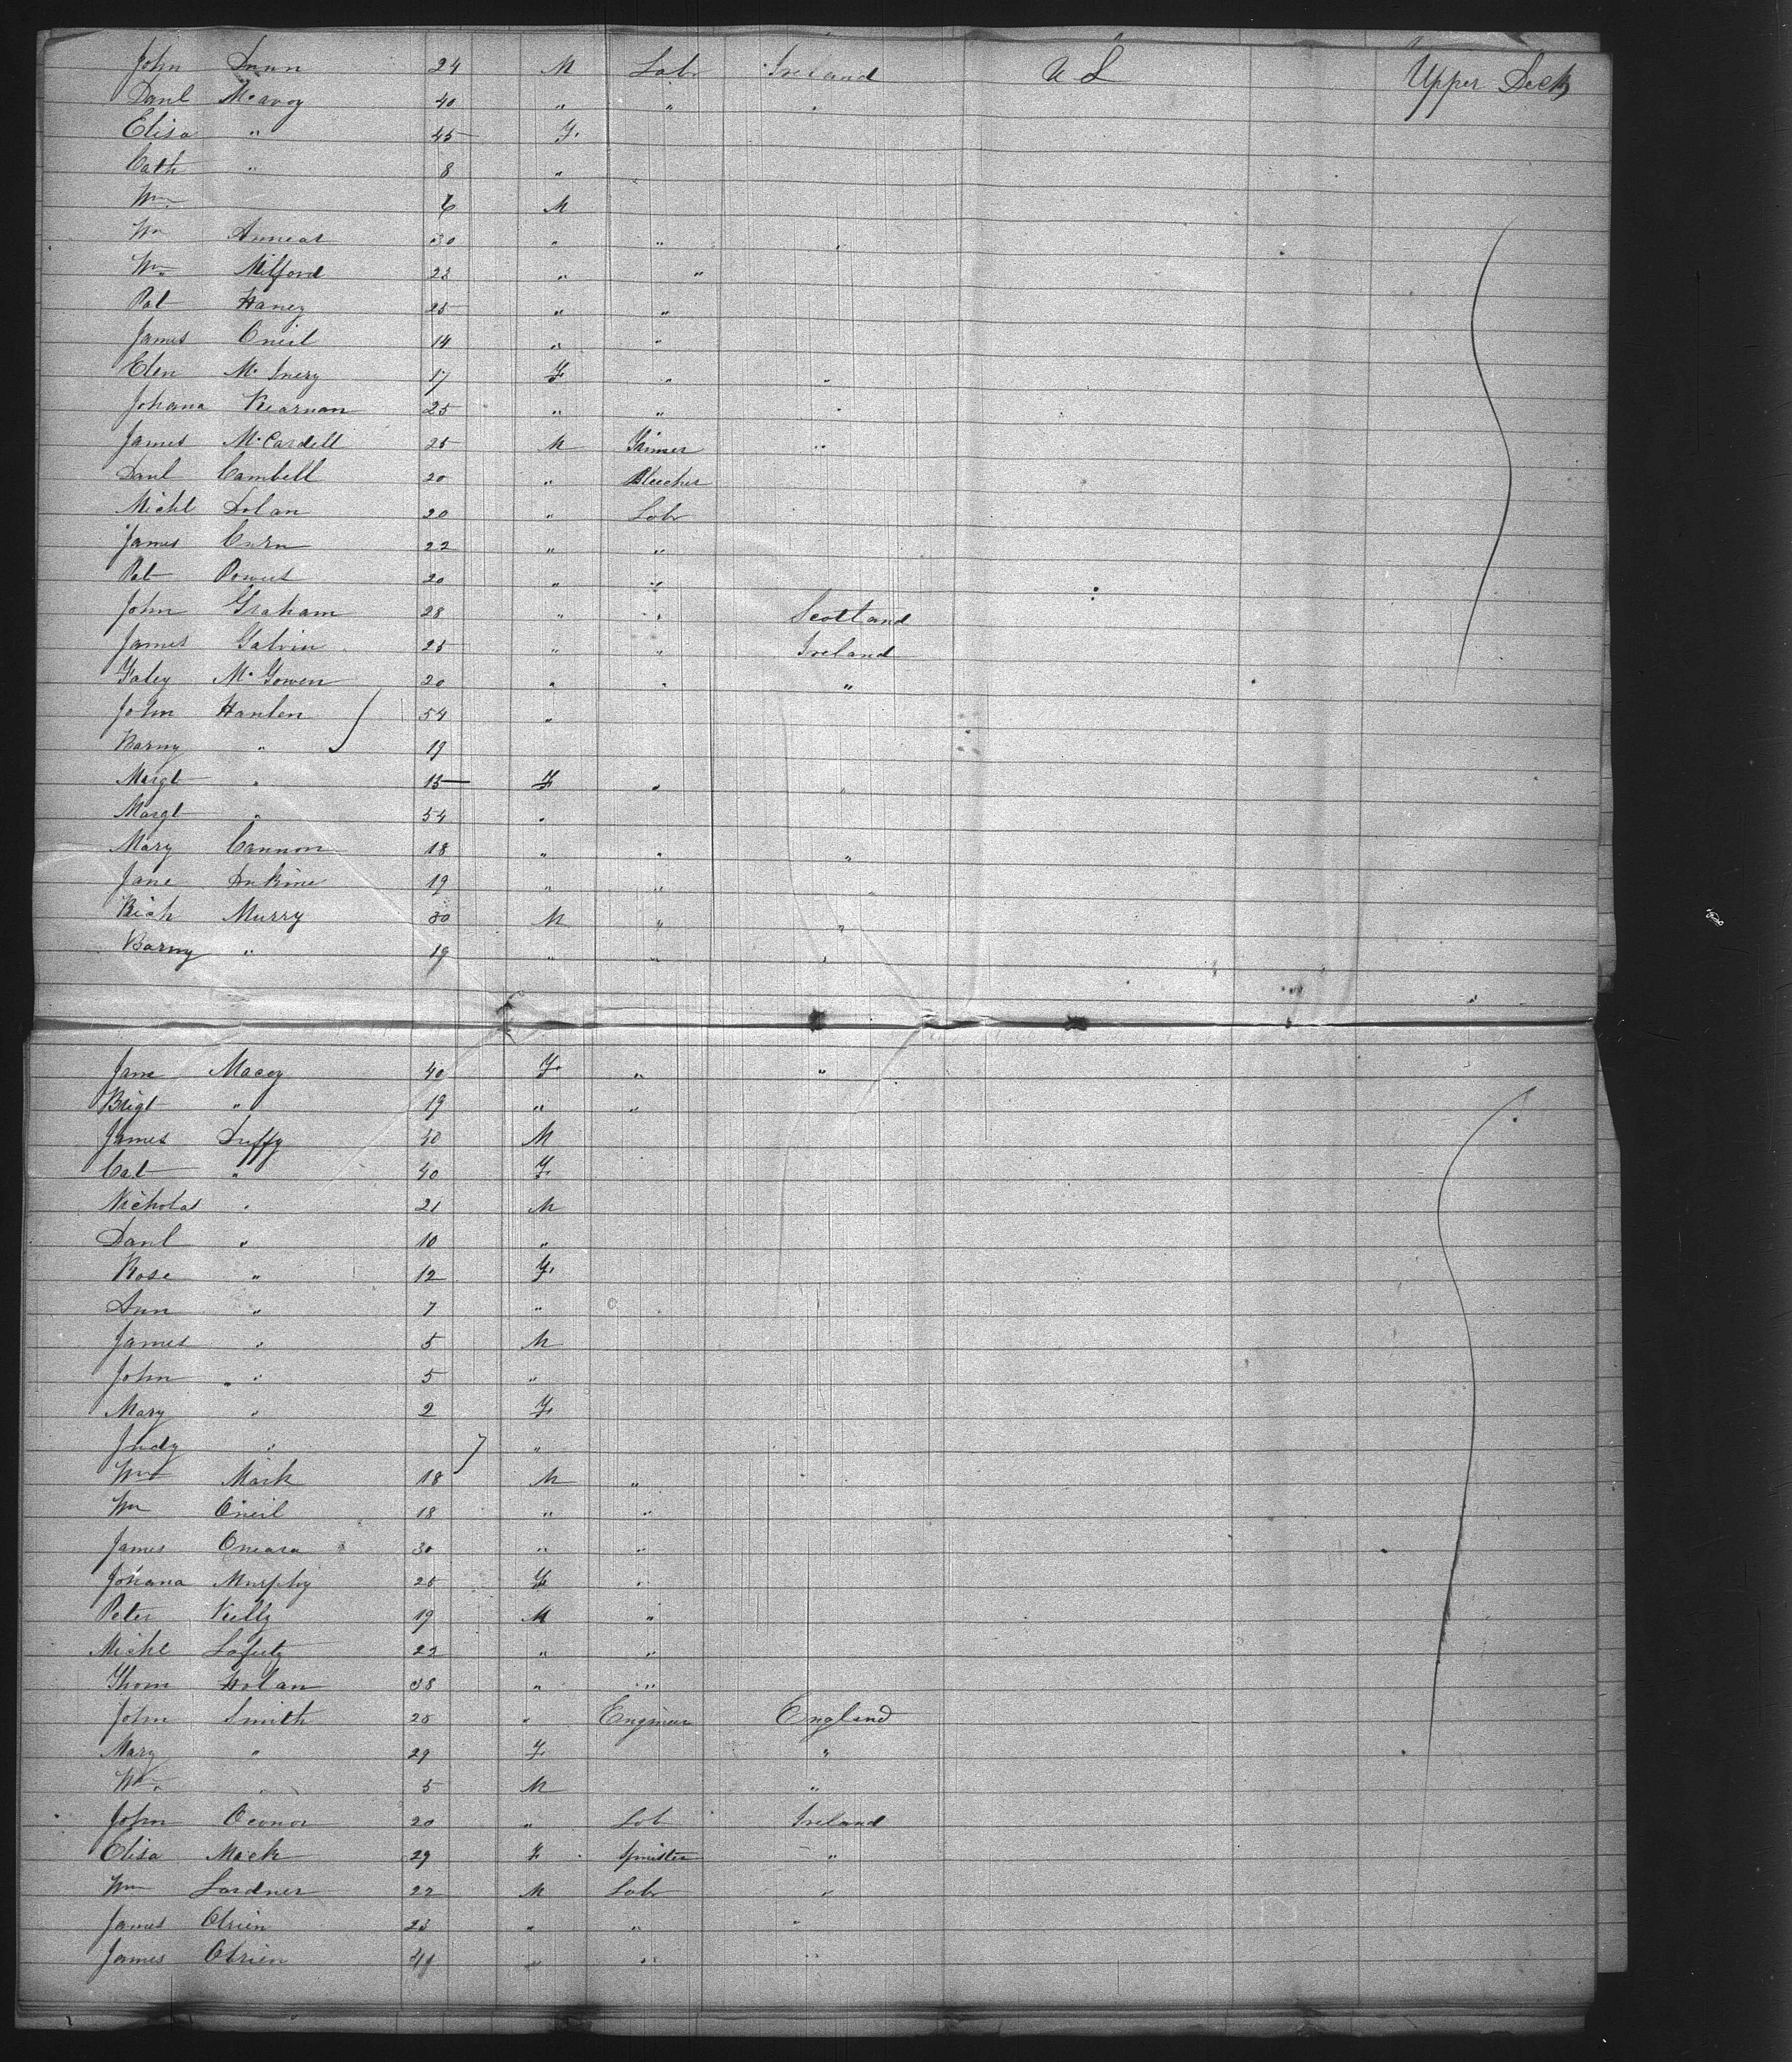 John Dunn 24 M Labr Ireland U S Upper Deck
Danl McAvoy 40 " " "
Elisa " 45 F.
Cath " 8 "
Wm. 6 M
Wm 30 " " "
Wm. Milford 23 " "
Pat Haney 25 " "
James Oneil 14 " "
Elen Mc Inery 17 F " "
Johana Kearnan 25 " " "
James McCardell 25 M "
Danl Cambell 20 " Bleecher
Michl Dolan 20 " Labr
James Curn 22 " "
Pat 20 " "
John Graham 28 " " Scotland
James Galvin 25 " " Ireland
McGowen 20 " " "
John Hanlen 54 "
Barny " 19
Margt " 15 F " "
Margt " 54 "
Mary Cannon 18 " " "
Jane 19 " " "
Rich Murry 30 M " "
Barny " 19 " " "
Jane Macey 40 F. " "
Brigt " 19 " "
James Duffy 40 M
Cat " 40 F.
Nicholas " 21 M
Danl " 10 "
Rose " 12 F.
Ann " 7 "
James " 5 M
John " 5 "
Mary " 2 F.
Judy " "
Wm Mark 18 M "
Wm Oneil 18 " "
James Omeara 30 " "
Johana Murphy 25 F "
Peter Kelly 19 M "
Michl 22 " "
Thom Holan 38 " "
John Smith 25 " Engineer England
Mary " 29 F. "
Wm. " 5 M "
John Oconor 20 " Lab Ireland
Elisa Mack 29 F Spinster "
Wm Lardner 22 M Labr "
James Obrien 23 " " "
James Obrien 49 " " "